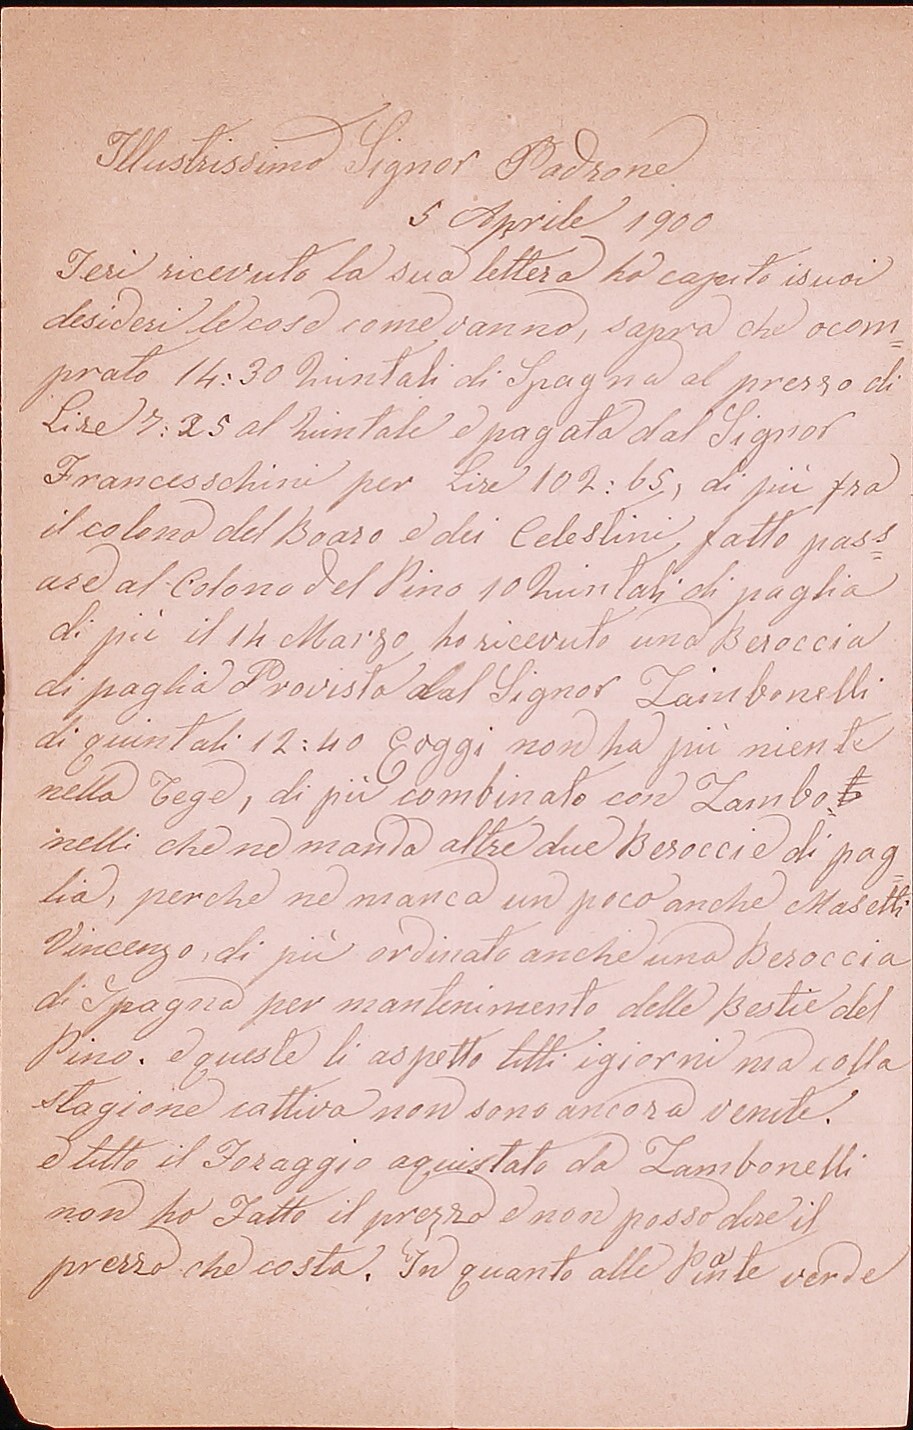 Illustrissimo Signor Padrone
5 Aprile 1900
Ieri ricevuto la sua lettera ho caputo isuoi
desideri le cose come vanno, sapra che ocom=
prato 14:30 Quintali di Spagna al prezzo di
Lire 7:25 al Quintale e pagata dal Signor
Francesschini per Lire 102:65, di più fra
il colono del Boaro e dei Celestini, fatto pass=
are al Colono del Pino 10 Quintali di paglia
di più il 14 Marzo ho ricevuto una Beroccia
di paglia Provista dal Signor Zambonelli
di quintali 12:40 Eoggi non ha più niente
nella Tege, di più combinato con Zambo
nelli che ne manda altre due Beroccie di pag=
lia, perche ne manca un poco anche Masetti
Vincenzo, di più ordinato anche una Beroccia
di Spagna per mantenimento delle Bestie del
Pino. e queste li aspetto tutti igiorni ma colla
stagione cattiva non sono ancora venute.
e tutto il Foraggio aquistato da Zambonelli
non ho Fatto il prezzo e non posso dire il
prezzo che costa. In quanto alle Piante verde